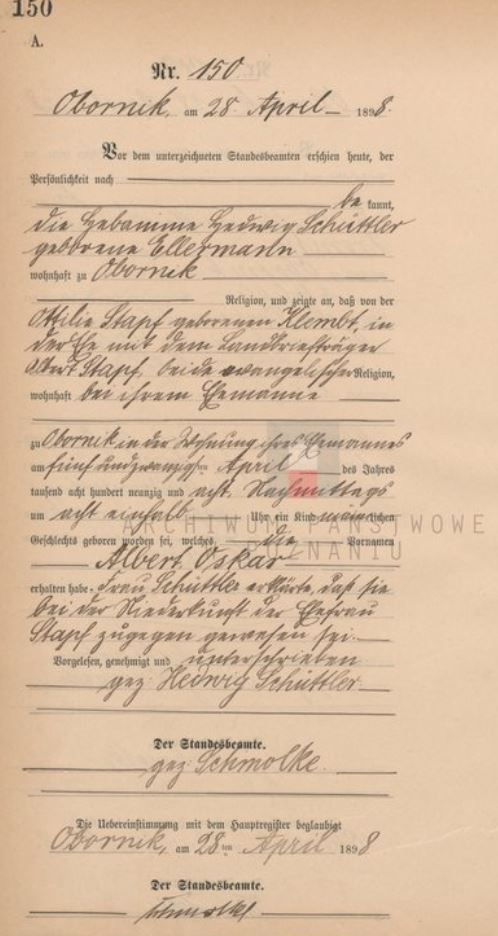 150
A.
Nr. 150
Obornik, am 28. April 1898.
Vor dem unterzeichneten Standesbeamten erschien heute, der
Persönlichkeit nach
be kannt,
die Hebamme Hedwig Schüttler
geborene Ellermann
wohnhaft zu Obornik
Religion, und zeigte an, daß von der
Ottilie Stapf geborenen Klembt, in
der Ehe mit dem Landbriefträger
Albert Stapf, beide evangelischer Religion,
wohnhaft bei ihrem Ehemanne
zu Obornik in der Wohnung ihres Ehemannes
am fünf und zwanzigsten April des Jahres
tausend acht hundert neunzig und acht, Nachmittags
um acht einhalb Uhr ein Kind männlichen
Geschlechts geboren worden sei, welches die Vornamen
Albert Oskar
erhalten habe. Frau Schüttler erklärte, daß sie
bei der Niederkunft der Ehefrau
Stapf zugegen gewesen sei.
Vorgelesen, genehmigt und unterschrieben
gez. Hedwig Schüttler
Der Standesbeamte.
gez. Schmolke.
Die Uebereinstimmung mit dem Hauptregister beglaubigt
Obornik, am 28ten April 1898
Der Standesbeamte.
Schmolke
ARCHIWUM PAŃSTWOWE
POZNANIU